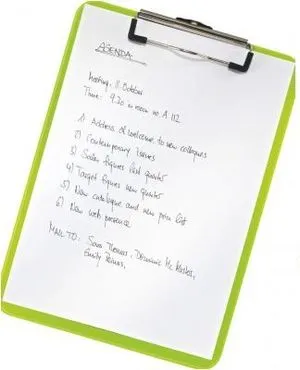 AGENDA
Meeting, 11. October
Time: 9.20 in room no. A 112
1) Address of welcome to new collegues
2) Contemporary issues
3) Sales figures last quarter
4) Target figures new quarter
5) New catalogue and new price list
6) New web presence
MAIL TO: Sara Thomas, Dominic Mc
Emily